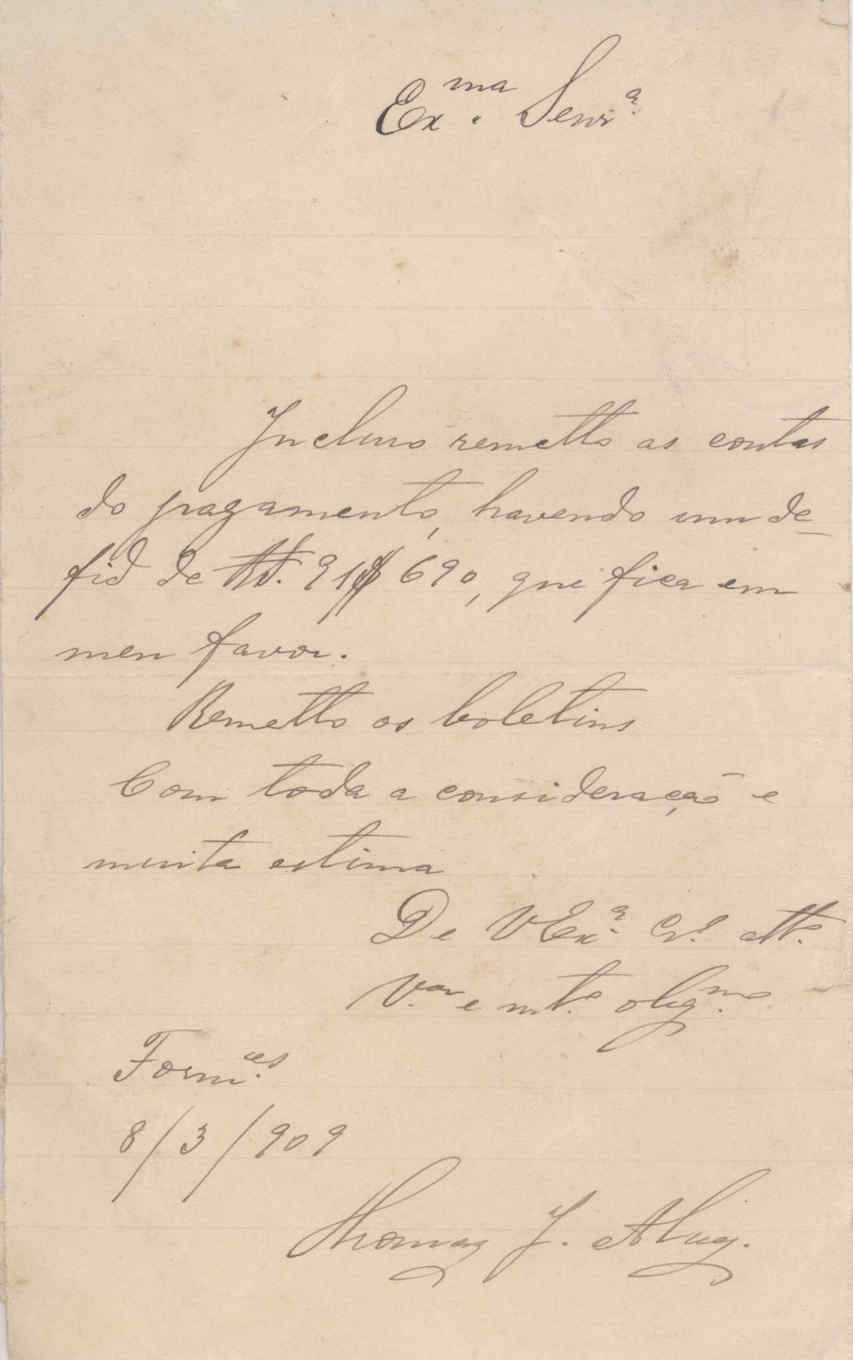 Ex.ma Senr.ª
Incluso remetto as contas
do pagamento, havendo um de-
fid de 91$690, que fica em
meu favor.
Remetto os boletins
Com toda a consideração e
muita estima
De VEx.ª Cr.º Att.º
V.or e mt.º obg.mo
Form.es
8/3/909
Thomaz J.